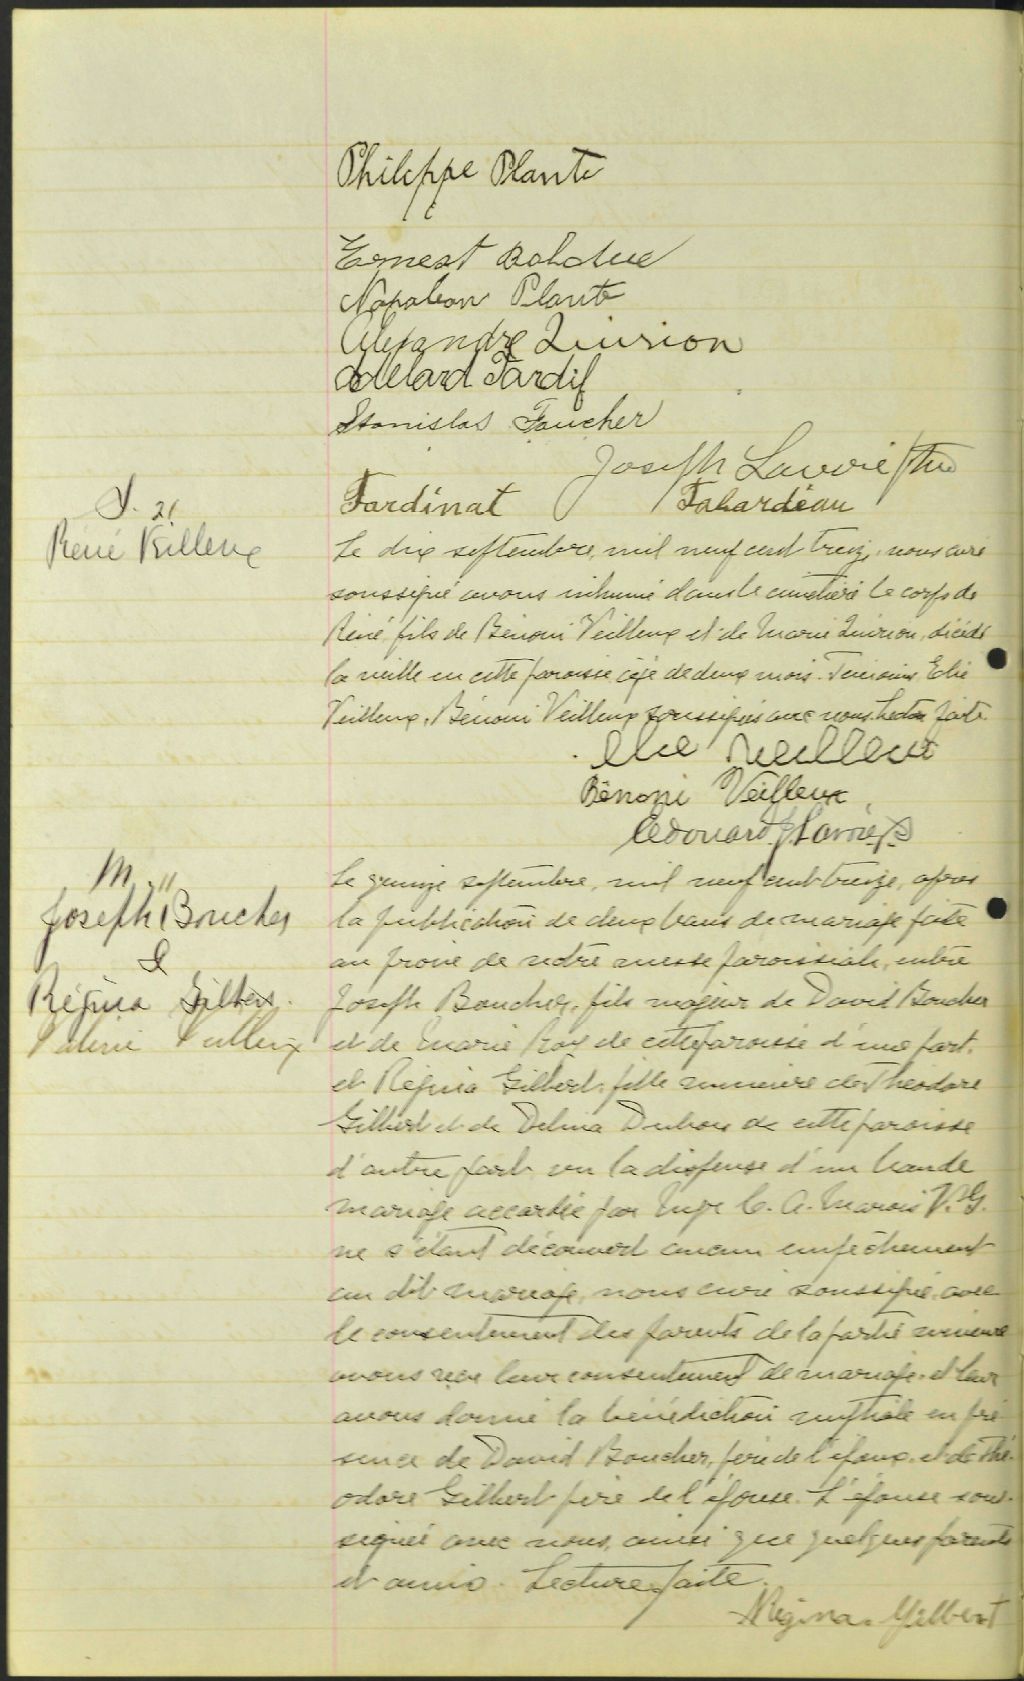 Philippe Plante
Ernest Bolduc
Napoleon Plante
Alexandre Quirion
Adelard Tardif
Stanislas Faucher
Joseph Lavoie ptre
Fardinat Fabardeau
S. 21
René Veilleux
Le dix septembre, mil neuf cent treize, nous curé
soussigné avons inhumé dans le cimetière le corps de
René, fils de Bénoni Veilleux et de Marie Quirion, décédé
la veille en cette paroisse âgé de deux mois. Témoins Elie
Veilleux, Bénoni Veilleux soussignés avec nous. Lecture faite.
Elie Veilleux
Bénoni Veilleux
Edouard Lavoie
M. 11
Joseph Boucher
&
Régina Gilbert.
Veilleux
Le quinze septembre, mil neuf cent treize, après
la publication de deux bans de mariage faite
au prône de notre messe paroissiale, entre
Joseph Boucher, fils majeur de David Boucher
et de Marie Roy de cette paroisse d'une part,
et Régina Gilbert, fille mineure de Théodore
Gilbert et de Delina Dubois de cette paroisse
d'autre part vu la dispense d'un ban de
mariage accordée par Mgr C. A. Marois V. G.
ne s'étant découvert aucun empêchement
au dit mariage, nous curé soussigné, avec
le consentement des parents de la partie mineure
avons reçu leur consentement de mariage, et leur
avons donné la bénédiction nuptiale en pré
sence de David Boucher, père de l'époux, et de Thé-
odore Gilbert père de l'épouse. L'épouse sous-
signée avec nous, ainsi que quelques parents
et amis. Lecture faite.
Régina Gilbert